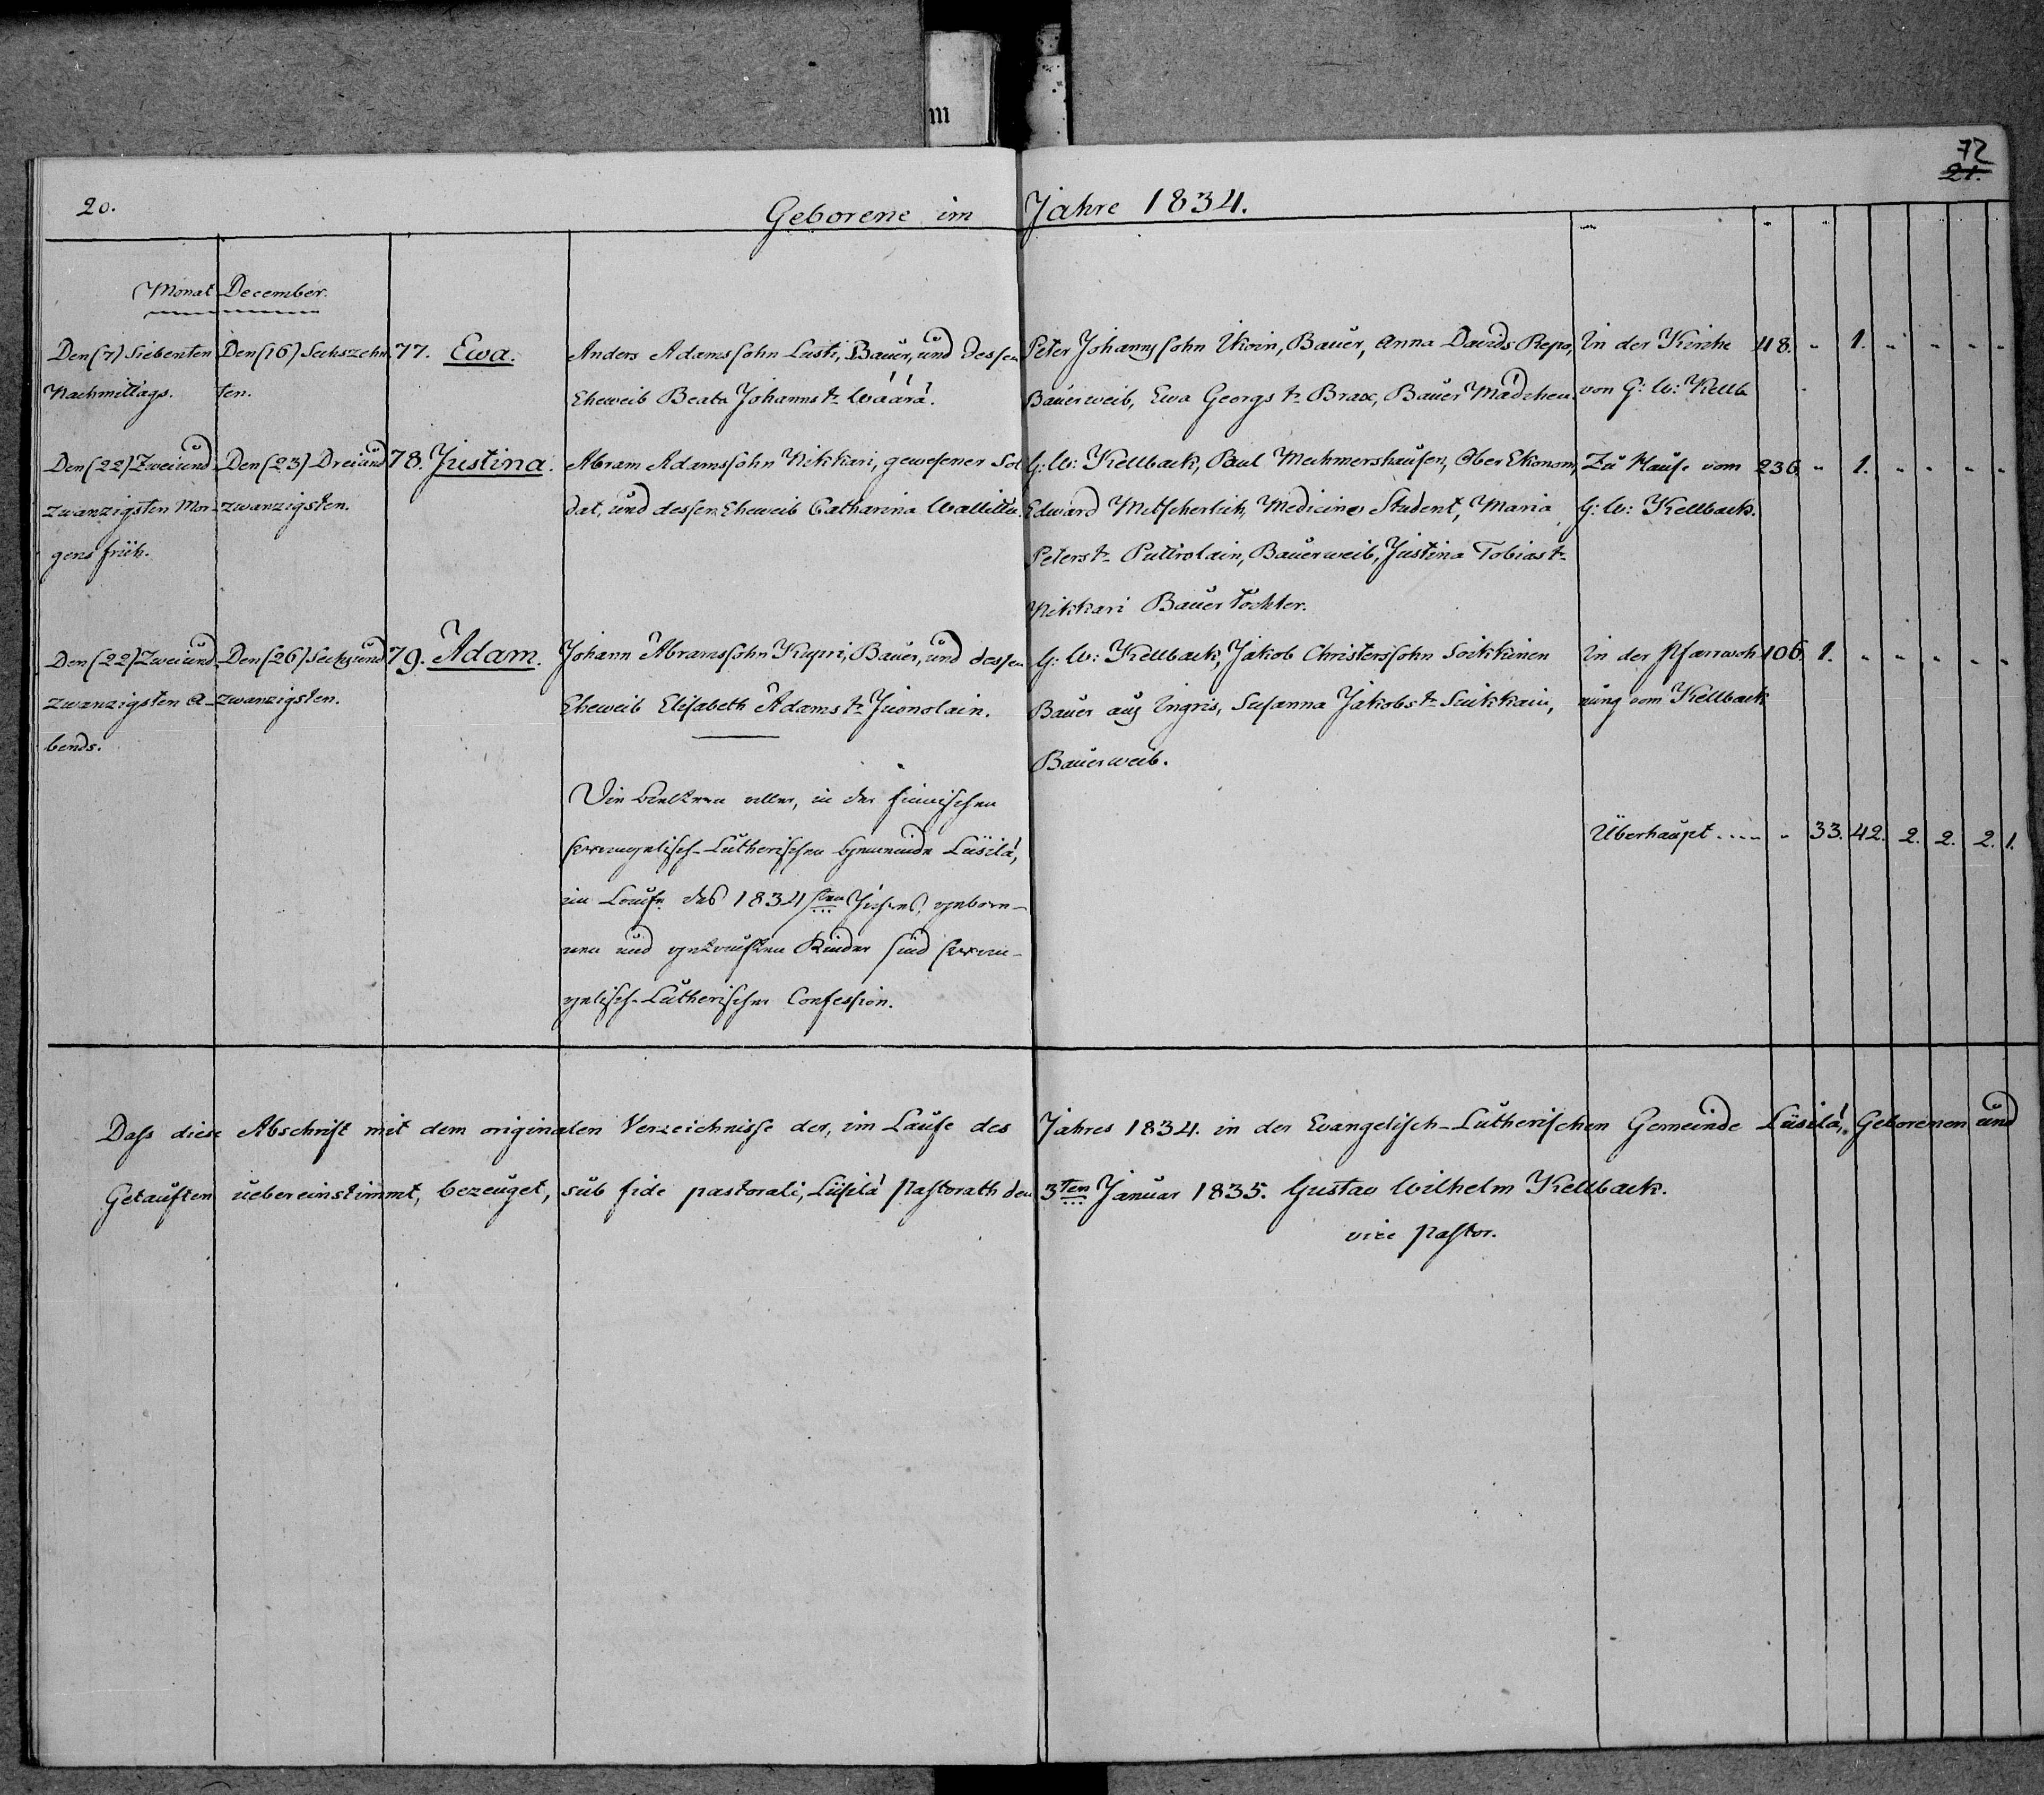 m
72
21.
20.
Geborene im Jahre 1834.
Monat December.
Den (7) Siebenten
Nachmittags.
Den (16) Sechszehn
ten.
77. Ewa.
Anders Adamssohn Lusti, Bauer, und dessen
Eheweib Beata Johannstr Wäärä.
Peter Johannssohn Ikoin, Bauer, Anna Davids Repo,
Bauerweib, Ewa Georgstr Brax, Bauer Mädchen.
In der Kirche
von G: W: Kellb
48. " 1. " " " "
Den (22) Zweiund
zwanzigsten Mor-
gens früh.
Den (23) Dreiund
zwanzigsten.
78. Justina.
Abram Adamssohn Nikkari, gewesener Sol
dat, und dessen Eheweib Catharina
G: W: Kellback, Paul Mechmershausen, Ober Ekonom,
Edward Mitscherlich, Medicine Student, Maria
Peterstr Putirolain, Bauerweib, Justina Tobiastr
Nikkari Bauer Tochter.
Zu Hause vom
G: W: Kellback.
236. " 1. " " " "
Den (22) Zweiund
zwanzigsten A-
bends.
Den (26) Sechsund
zwanzigsten.
79. Adam.
Johann Abramssohn Kupri, Bauer, und dessen
Eheweib Elisabeth Adamstr Juonolain.
G: W: Kellback, Jakob Christerssohn Soikkinen
Bauer aus Ingris, Susanna Jakobstr Suikkain,
Bauerweib.
In der Pfarrwoh
nung vom Kellback
106. 1. " " " " "
Die Aeltern aller, in der finnischen
Evangelisch-Lutherischen Gemeinde Liisilä,
im Laufe des 1834sten Jahres, gebore-
nen und getauften Kinder sind Evan-
gelisch-Lutherischer Confession.
Überhaupt .... " 33. 42. 2. 2. 2. 1.
Dass diese Abschrift mit dem originalen Verzeichnisse der, im Laufe des Jahres 1834. in der Evangelisch-Lutherischen Gemeinde Liisilä, Geborenen und
Getauften uebereinstimmt, bezeuget, sub fide pastorali, Liisilä Pastorath den 3ten Januar 1835. Gustav Wilhelm Kellback.
vice Pastor.